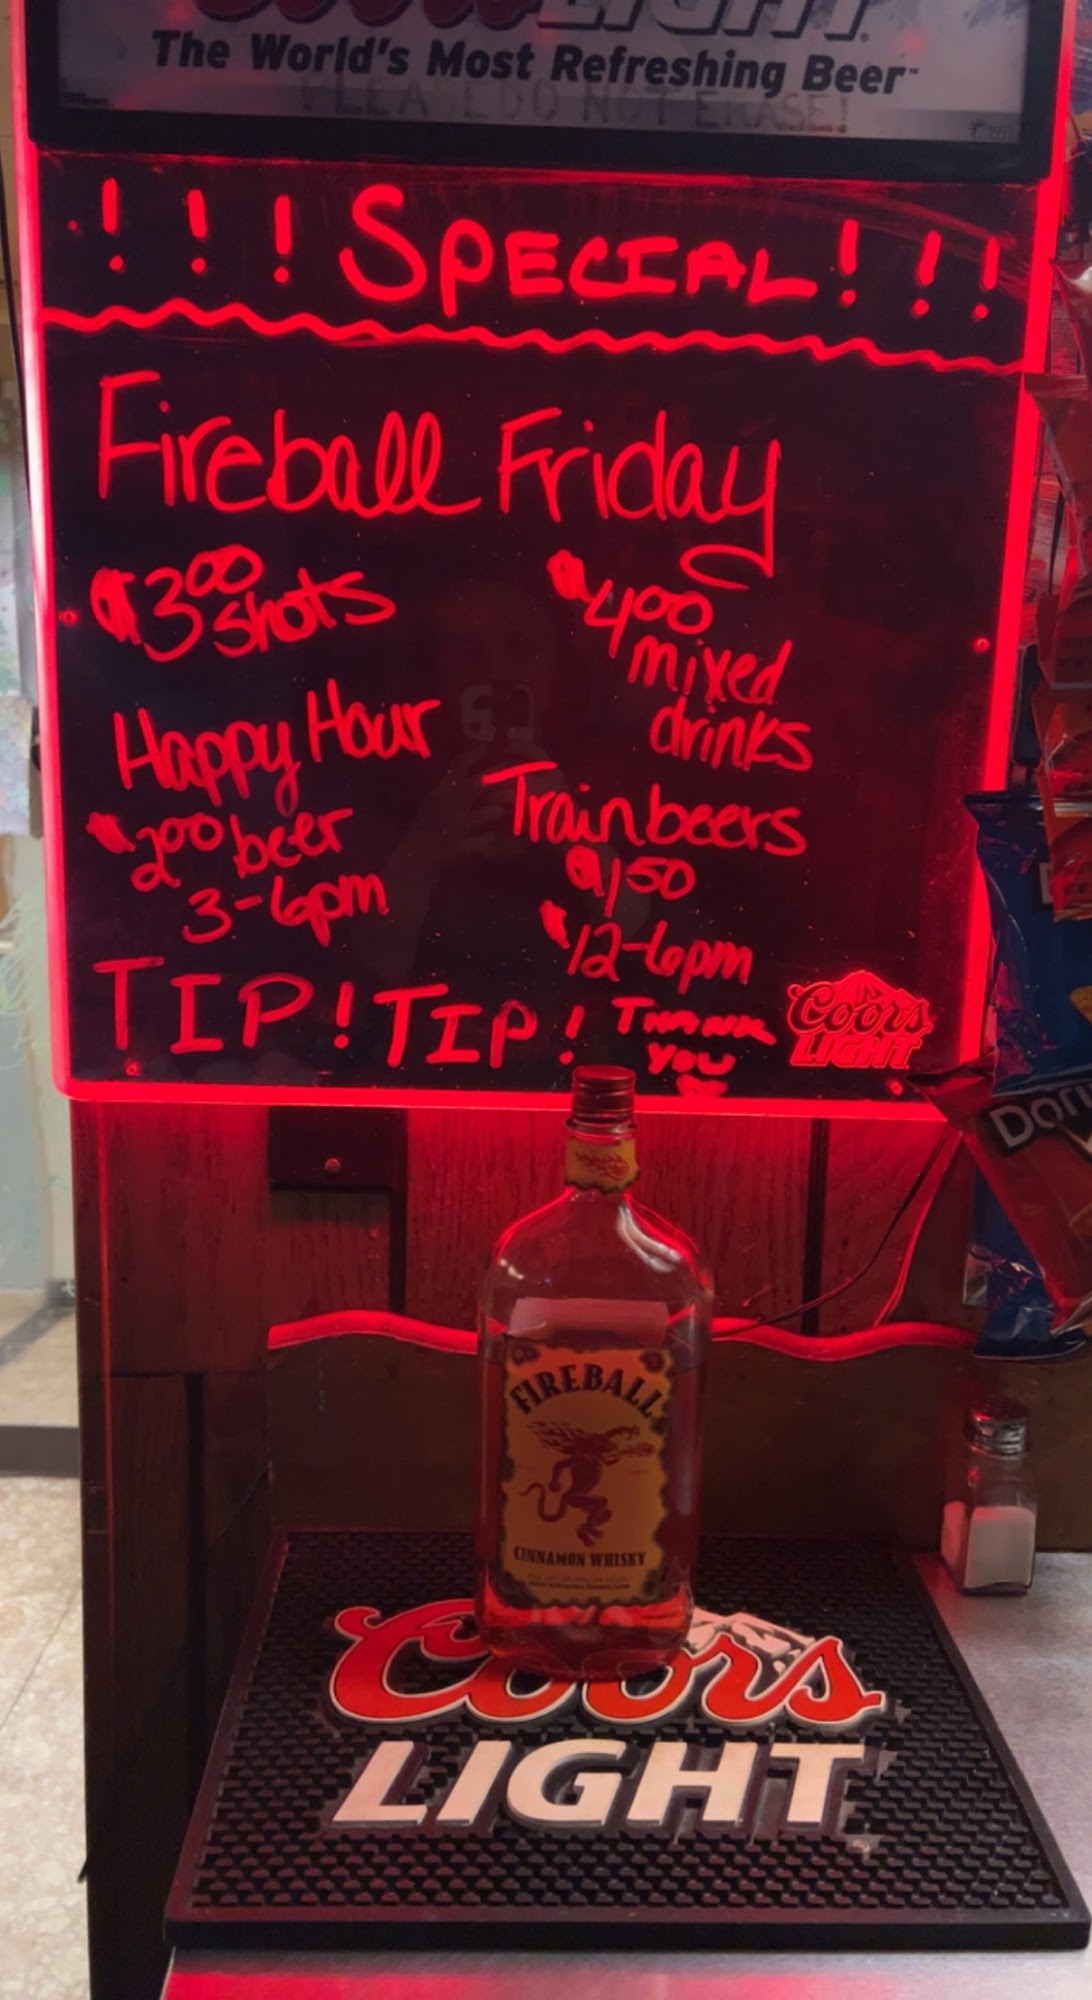 Coors LIGHT
The World's Most Refreshing Beer™
DO NOT ERASE!
!!! SPECIAL!!!
Fireball Friday
$3.00 shots
$4.00
mixed
drinks
Happy Hour
$2.00 beer
3-6pm
Trainbeers
$1.50
12-6pm
TIP! TIP! THANK
YOU
Coors
LIGHT
FIREBALL
CINNAMON WHISKY
Coors
LIGHT